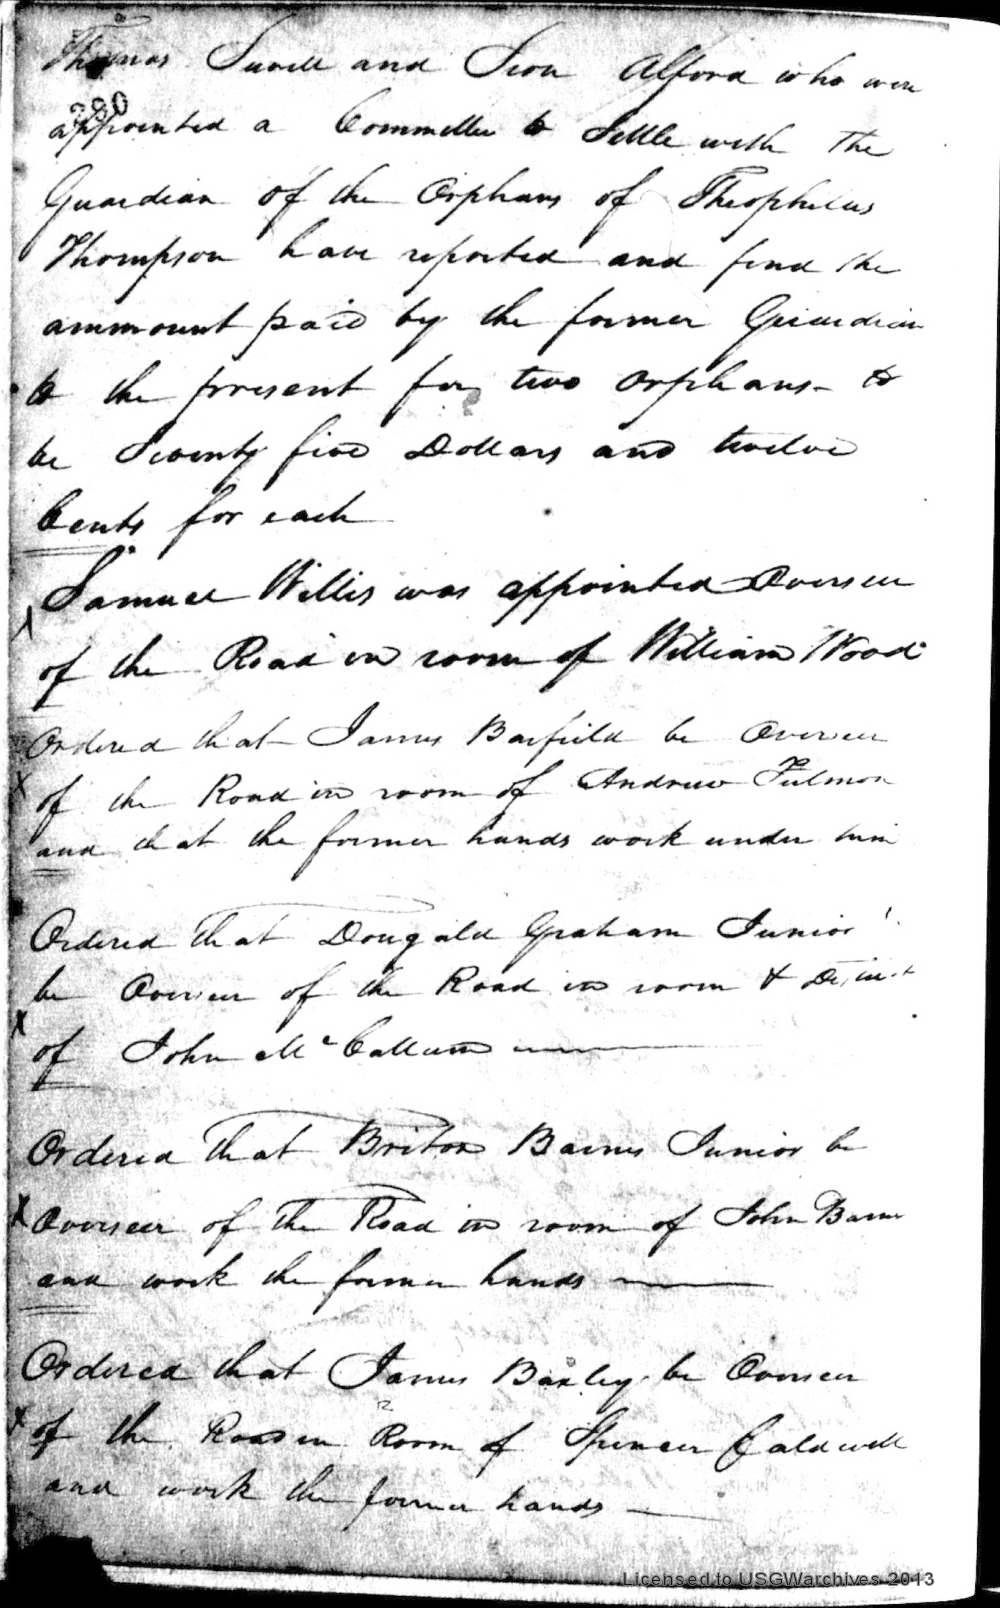 Thomas and Sion Alford who were
280
appointed a Committee to Settle with the
Guardian of the Orphans of Theophelus
Thompson have reported and find the
ammount paid by the former Guardian
to the present for two orphans to
be Seventy five Dollars and twelve
Cents for each
Samuel Willis was appointed Overseer
of the Road in room of William Wood
Ordered that James Barfield be Overseer
X of the Road in room of Andrew Fulmon
and that the former hands work under him
Ordered that Dougald Graham Junior
be Overseer of the Road in room & Distirct
X of John Mc Callum
Ordered that Briton Barnes Junior be
X Overseer of the Road in room of John Barnes
and work the former hands
Ordered that James Baxley be Overseer
X of the Road in Room of Spencer Caldwell
and work the former hands
Licensed to USGWarchives 2013